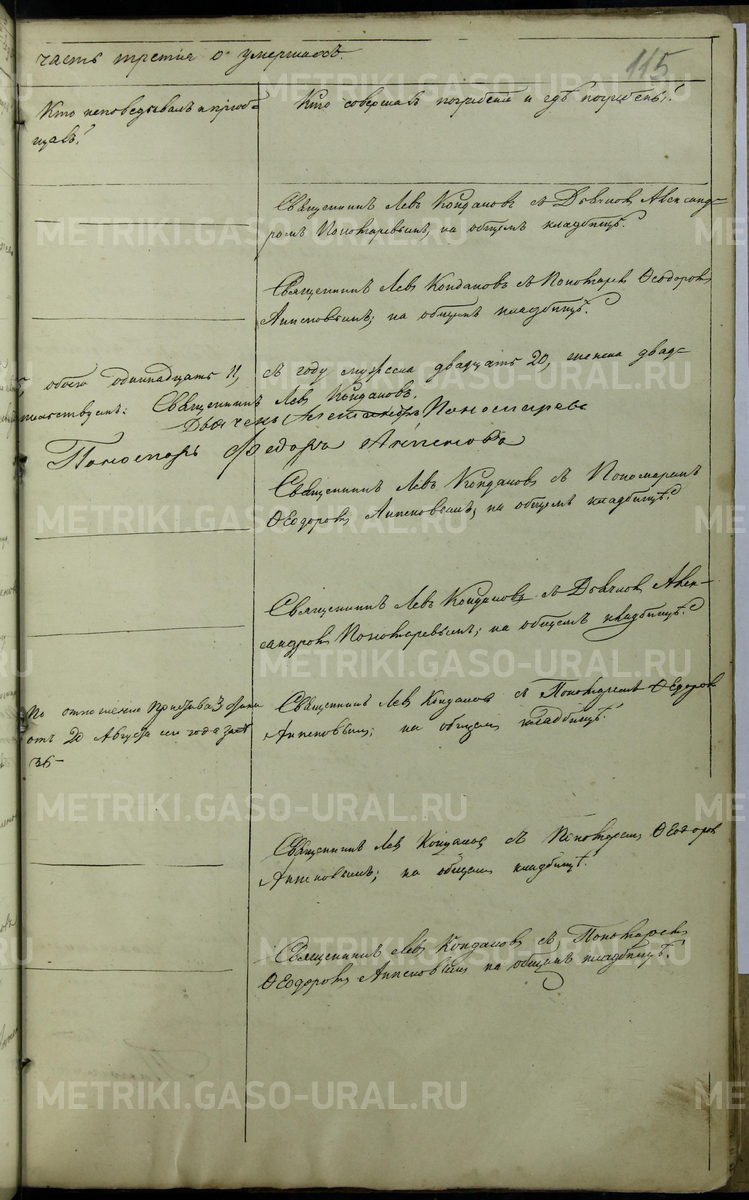 часть третія о умершихъ.
115
Кто исповѣдывалъ и пріоб-
щалъ?
Кто совершалъ погребеніе и гдѣ погребены?
Священникъ Левъ Кондаковъ съ Дьячком Александ-
ромъ Пономаревымъ, на общемъ кладбищѣ.
Священникъ Лев Кондаковъ съ Пономарем Ѳеодоромъ
на общемъ кладбищѣ.
обоего одинадцать 11, съ году мужеска двадцать 20, женска двад-
Священникъ Левъ Кондаковъ.
Дьячекъ Александръ Пономаревъ
Пономарь Федоръ
Священникъ Левъ Кондаковъ съ Пономаремъ
Ѳеодоромъ на общемъ кладбищѣ.
Священникъ Левъ Кондаковъ съ Дьячком Алек-
сандром Пономаревымъ; на общемъ кладбищѣ.
По отношенію
отъ 20 Августа сего года за №
36
Священникъ Левъ Кондаковъ съ Пономаремъ Ѳеодором
на общем кладбищѣ.
Священникъ Лев Кондаков съ Пономарем Ѳеодором
на общем кладбищѣ.
Священникъ Левъ Кондаков съ Пономарем
Ѳеодором на общемъ кладбищѣ.
METRIKI.GASO-URAL.RU